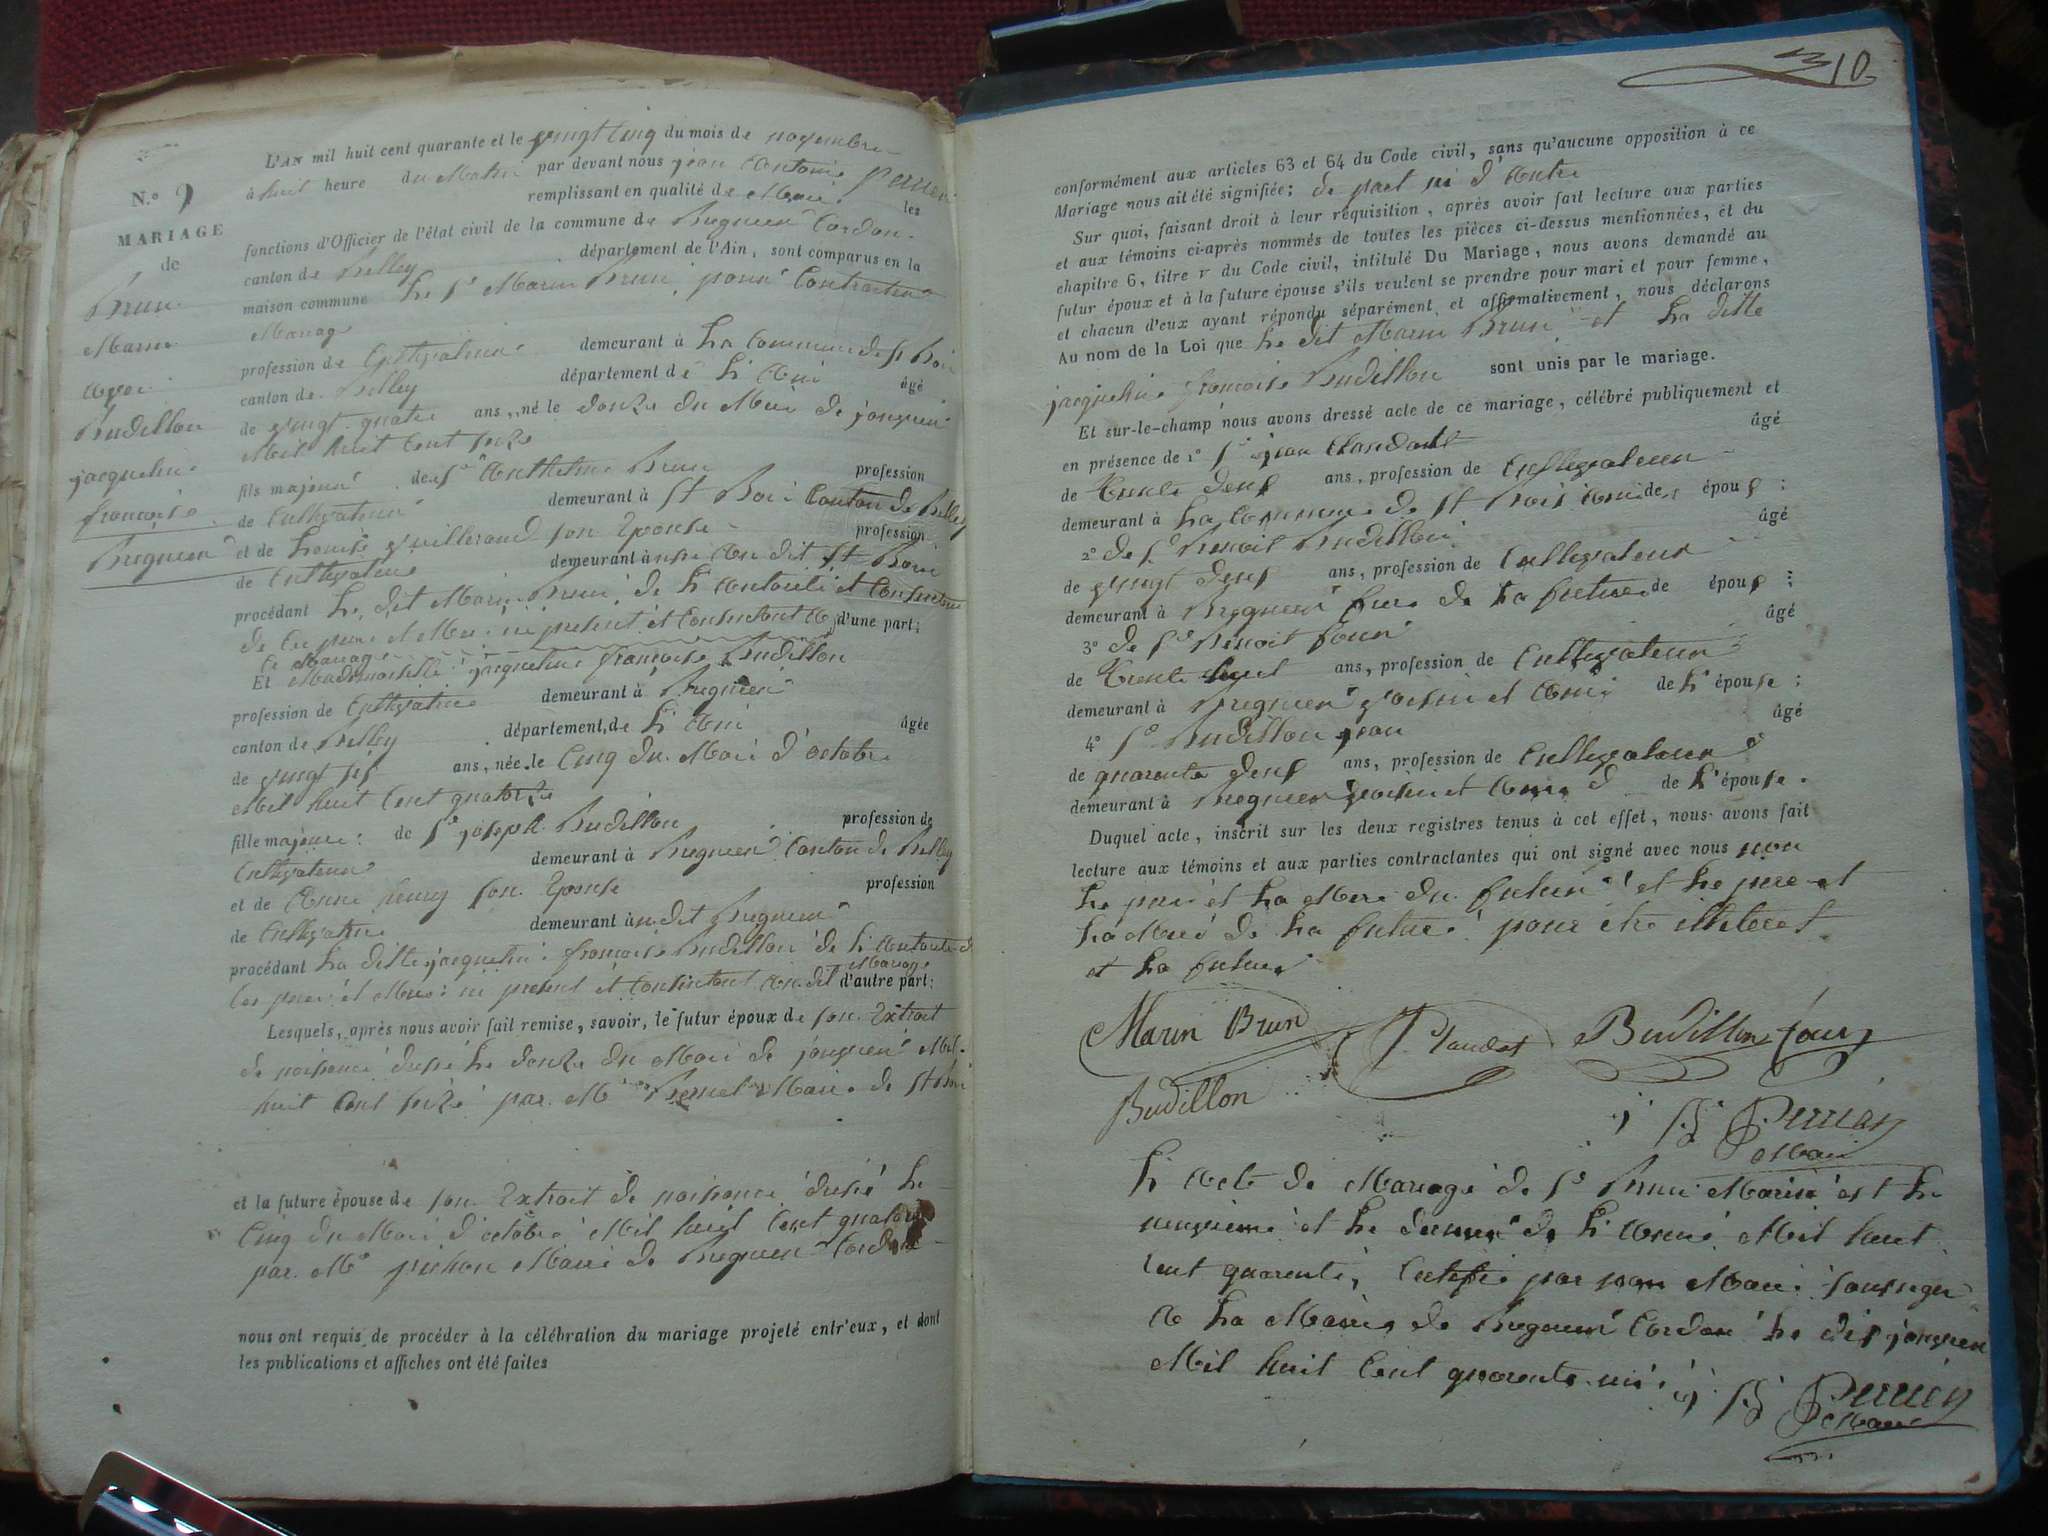 N.º 9
MARIAGE
de
Brun
Marin
avec
Budillon
jacqueline
françoise
Bregnier
L'AN mil huit cent quarante et le vingt cinq du mois de novembre
à huit heure du Matin par devant nous jean Antoine Perrier
remplissant en qualité de Maire les
fonctions d'Officier de l'état civil de la commune de Bregnier Cordon
canton de Belley département de l'Ain, sont comparus en la
maison commune Le Sr Marin Brun, pour Contracter
Mariage
profession de Cultivateur demeurant à La Commune de St Bois
canton de Belley département de L'Ain âgé
de vingt quatre ans, né le douze du Mois de janvier
Mil huit Cent seize
fils majeur de Sr Anthelme Brun profession
de Cultivateur demeurant à St Bois Canton de Belley
et de Louise Guilleraud son Epouse profession
de Cultivateur demeurant à au dit St Bois
procédant Le dit Marin Brun de L'Autorité et Consentement
de Ces pere et Mere ici présent et Consentant à d'une part;
Ce Mariage
Et Mademoiselle jacqueline françoise Budillon
profession de Cultivatrice demeurant à Bregnier
canton de Belley département de L'Ain âgée
de vingt six ans, née le Cinq du Mois d'octobre
Mil huit Cent quatorze
fille majeure de Sr joseph Budillon profession de
Cultivateur demeurant à Bregnier Canton de Belley
et de Anne henry son Epouse profession
de Cultivatrice demeurant à au dit Bregnier
procédant La dite jacqueline françoise Budillon de L'Autorité de
Ces pere et Mere ici présent et Consentant Au dit Mariage d'autre part:
Lesquels, après nous avoir fait remise, savoir, le futur époux de son Extrait
de naissance dressé Le douze du Mois de janvier Mil
huit Cent seize par Mr Maire de St Bois
et la future épouse de son Extrait de naissance dressé Le
Cinq du Mois d'octobre Mil huit Cent quatorze
par Mr Maire de Bregnier Cordon
nous ont requis de procéder à la célébration du mariage projeté entr'eux, et dont
les publications et affiches ont été faites
10
conformément aux articles 63 et 64 du Code civil, sans qu'aucune opposition à ce
Mariage nous ait été signifiée; de part ni d'Autre
Sur quoi, faisant droit à leur réquisition, après avoir fait lecture aux parties
et aux témoins ci-après nommés de toutes les pièces ci-dessus mentionnées, et du
chapitre 6, titre v du Code civil, intitulé Du Mariage, nous avons demandé au
futur époux et à la future épouse s'ils veulent se prendre pour mari et pour femme,
et chacun d'eux ayant répondu séparément et affirmativement, nous déclarons
Au nom de la Loi que Le dit Marin Brun et La dite
jacqueline françoise Budillon sont unis par le mariage.
Et sur-le-champ nous avons dressé acte de ce mariage, célébré publiquement et
en présence de 1º Sr jean Claudat âgé
de Trente deux ans, profession de Cultivateur
demeurant à La Commune de St Bois Ami de époux;
2º de Sr Benoit Budillon âgé
de vingt deux ans, profession de Cultivateur
demeurant à Bregnier frere de La future de époux;
3º de Sr Benoit four âgé
de Trente huit ans, profession de Cultivateur
demeurant à Bregnier voisin et Ami de L'épouse;
4º Sr Budillon jean âgé
de quarante deux ans, profession de Cultivateur
demeurant à Bregnier voisin et Ami de L'épouse.
Duquel acte, inscrit sur les deux registres tenus à cet effet, nous avons fait
lecture aux témoins et aux parties contractantes qui ont signé avec nous non
Le pere et La Mere du futur et Le pere et
La Mere de La future pour être illiteres
et La future
Marin Brun Claudat Budillon four
Budillon
j A Perrier
Maire
L'Acte de Mariage de Sr Brun Marin est Le
neuvieme et Le dernier de L'Année Mil huit
Cent quarante, Certifié par nous Maire soussigné
A La Mairie de Bregnier Cordon Le dix janvier
Mil huit Cent quarante un
j A Perrier
Maire